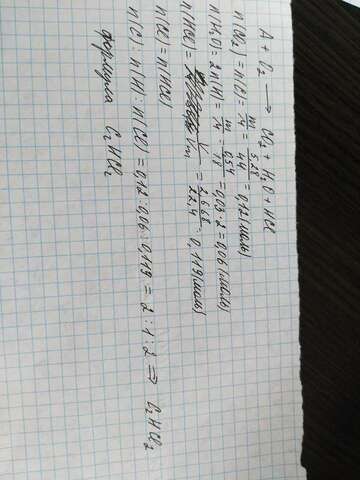 A + O₂ ⟶ CO₂ + H₂O + HCl
n(CO₂) = n(C) = m/M = 5,28/44 = 0,12 (моль)
n(H₂O) = 2n(H) = m/M = 0,54/18 = 0,03·2 = 0,06 (моль)
n(HCl) = V/Vm = 2,668/22,4 = 0,119 (моль)
n(Cl) = n(HCl)
n(C) : n(H) : n(Cl) = 0,12 : 0,06 : 0,119 = 2 : 1 : 2 ⟹ C₂HCl₂
формула C₂HCl₂